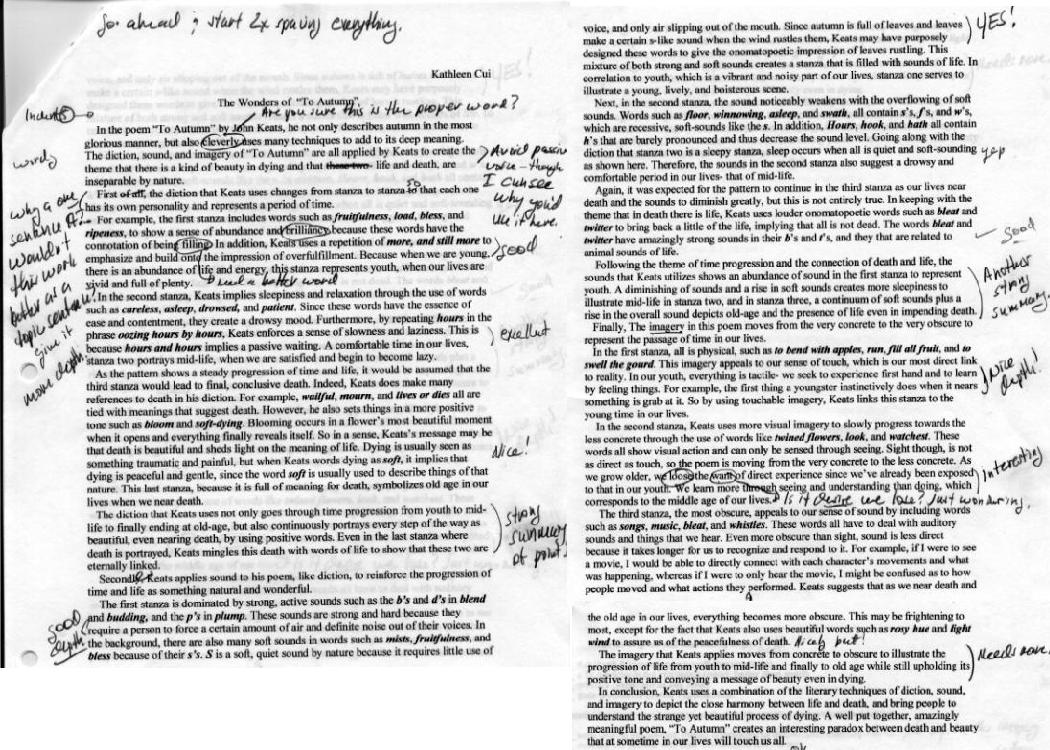 Go ahead ; start 2x spacing everything.
Kathleen Cui
The Wonders of "To Autumn"
Are you sure this is the proper word?
Indent
In the poem "To Autumn" by John Keats, he not only describes autumn in the most
glorious manner, but also cleverly uses many techniques to add to its deep meaning.
The diction, sound, and imagery of "To Autumn" are all applied by Keats to create the
theme that there is a kind of beauty in dying and that life and death, are
inseparable by nature.
wordy
Avoid passive
voice - though
I can see
why you'd
use it here.
First of all, the diction that Keats uses changes from stanza to stanza so that each one
has its own personality and represents a period of time.
For example, the first stanza includes words such as fruitfulness, load, bless, and
ripeness, to show a sense of abundance and brilliance because these words have the
connotation of being filling. In addition, Keats uses a repetition of more, and still more to
emphasize and build onto the impression of overfulfillment. Because when we are young,
there is an abundance of life and energy, this stanza represents youth, when our lives are
vivid and full of plenty.
need a better word
Good
why a one
sentence ¶?
Wouldn't
this work
better as a
topic sentence?
Give it
more depth.
In the second stanza, Keats implies sleepiness and relaxation through the use of words
such as careless, asleep, drowsed, and patient. Since these words have the essence of
ease and contentment, they create a drowsy mood. Furthermore, by repeating hours in the
phrase oozing hours by hours, Keats enforces a sense of slowness and laziness. This is
because hours and hours implies a passive waiting. A comfortable time in our lives,
stanza two portrays mid-life, when we are satisfied and begin to become lazy.
excellent
As the pattern shows a steady progression of time and life, it would be assumed that the
third stanza would lead to final, conclusive death. Indeed, Keats does make many
references to death in his diction. For example, wailful, mourn, and lives or dies all are
tied with meanings that suggest death. However, he also sets things in a more positive
tone such as bloom and soft-dying. Blooming occurs in a flower's most beautiful moment
when it opens and everything finally reveals itself. So in a sense, Keats's message may be
that death is beautiful and sheds light on the meaning of life. Dying is usually seen as
something traumatic and painful, but when Keats words dying as soft, it implies that
dying is peaceful and gentle, since the word soft is usually used to describe things of that
nature. This last stanza, because it is full of meaning for death, symbolizes old age in our
lives when we near death.
Nice!
The diction that Keats uses not only goes through time progression from youth to mid-
life to finally ending at old-age, but also continuously portrays every step of the way as
beautiful, even nearing death, by using positive words. Even in the last stanza where
death is portrayed, Keats mingles this death with words of life to show that these two are
eternally linked.
strong
summary
of point!
Second, Keats applies sound to his poem, like diction, to reinforce the progression of
time and life as something natural and wonderful.
The first stanza is dominated by strong, active sounds such as the b's and d's in blend
and budding, and the p's in plump. These sounds are strong and hard because they
require a person to force a certain amount of air and definite noise out of their voices. In
the background, there are also many soft sounds in words such as mists, fruitfulness, and
bless because of their s's. S is a soft, quiet sound by nature because it requires little use of
Good
depth
voice, and only air slipping out of the mouth. Since autumn is full of leaves and leaves
make a certain s-like sound when the wind rustles them, Keats may have purposely
designed these words to give the onomatopoetic impression of leaves rustling. This
mixture of both strong and soft sounds creates a stanza that is filled with sounds of life. In
correlation to youth, which is a vibrant and noisy part of our lives, stanza one serves to
illustrate a young, lively, and boisterous scene.
YES!
Next, in the second stanza, the sound noticeably weakens with the overflowing of soft
sounds. Words such as floor, winnowing, asleep, and swath, all contain s's, f's, and w's,
which are recessive, soft-sounds like the s. In addition, Hours, hook, and hath all contain
h's that are barely pronounced and thus decrease the sound level. Going along with the
diction that stanza two is a sleepy stanza, sleep occurs when all is quiet and soft-sounding
as shown here. Therefore, the sounds in the second stanza also suggest a drowsy and
comfortable period in our lives- that of mid-life.
yep
Again, it was expected for the pattern to continue in the third stanza as our lives near
death and the sounds to diminish greatly, but this is not entirely true. In keeping with the
theme that in death there is life, Keats uses louder onomatopoetic words such as bleat and
twitter to bring back a little of the life, implying that all is not dead. The words bleat and
twitter have amazingly strong sounds in their b's and t's, and they that are related to
animal sounds of life.
Good
Following the theme of time progression and the connection of death and life, the
sounds that Keats utilizes shows an abundance of sound in the first stanza to represent
youth. A diminishing of sounds and a rise in soft sounds creates more sleepiness to
illustrate mid-life in stanza two, and in stanza three, a continuum of soft sounds plus a
rise in the overall sound depicts old-age and the presence of life even in impending death.
Another
strong
summary.
Finally, The imagery in this poem moves from the very concrete to the very obscure to
represent the passage of time in our lives.
In the first stanza, all is physical, such as to bend with apples, run, fill all fruit, and to
swell the gourd. This imagery appeals to our sense of touch, which is our most direct link
to reality. In our youth, everything is tactile- we seek to experience first hand and to learn
by feeling things. For example, the first thing a youngster instinctively does when it nears
something is grab at it. So by using touchable imagery, Keats links this stanza to the
young time in our lives.
Nice
depth!
In the second stanza, Keats uses more visual imagery to slowly progress towards the
less concrete through the use of words like twined flowers, look, and watchest. These
words all show visual action and can only be sensed through seeing. Sight though, is not
as direct as touch, so the poem is moving from the very concrete to the less concrete. As
we grow older, we loose the want of direct experience since we've already been exposed
to that in our youth. We learn more through seeing and understanding than doing, which
corresponds to the middle age of our lives.
Is it desire we lose? Just wondering.
Interesting
The third stanza, the most obscure, appeals to our sense of sound by including words
such as songs, music, bleat, and whistles. These words all have to deal with auditory
sounds and things that we hear. Even more obscure than sight, sound is less direct
because it takes longer for us to recognize and respond to it. For example, if I were to see
a movie, I would be able to directly connect with each character's movements and what
was happening, whereas if I were to only hear the movie, I might be confused as to how
people moved and what actions they performed. Keats suggests that as we near death and
the old age in our lives, everything becomes more obscure. This may be frightening to
most, except for the fact that Keats also uses beautiful words such as rosy hue and light
wind to assure us of the peacefulness of death.
Nicely put!
The imagery that Keats applies moves from concrete to obscure to illustrate the
progression of life from youth to mid-life and finally to old age while still upholding its
positive tone and conveying a message of beauty even in dying.
Needs more.
In conclusion, Keats uses a combination of the literary techniques of diction, sound,
and imagery to depict the close harmony between life and death, and bring people to
understand the strange yet beautiful process of dying. A well put together, amazingly
meaningful poem, "To Autumn" creates an interesting paradox between death and beauty
that at sometime in our lives will touch us all.